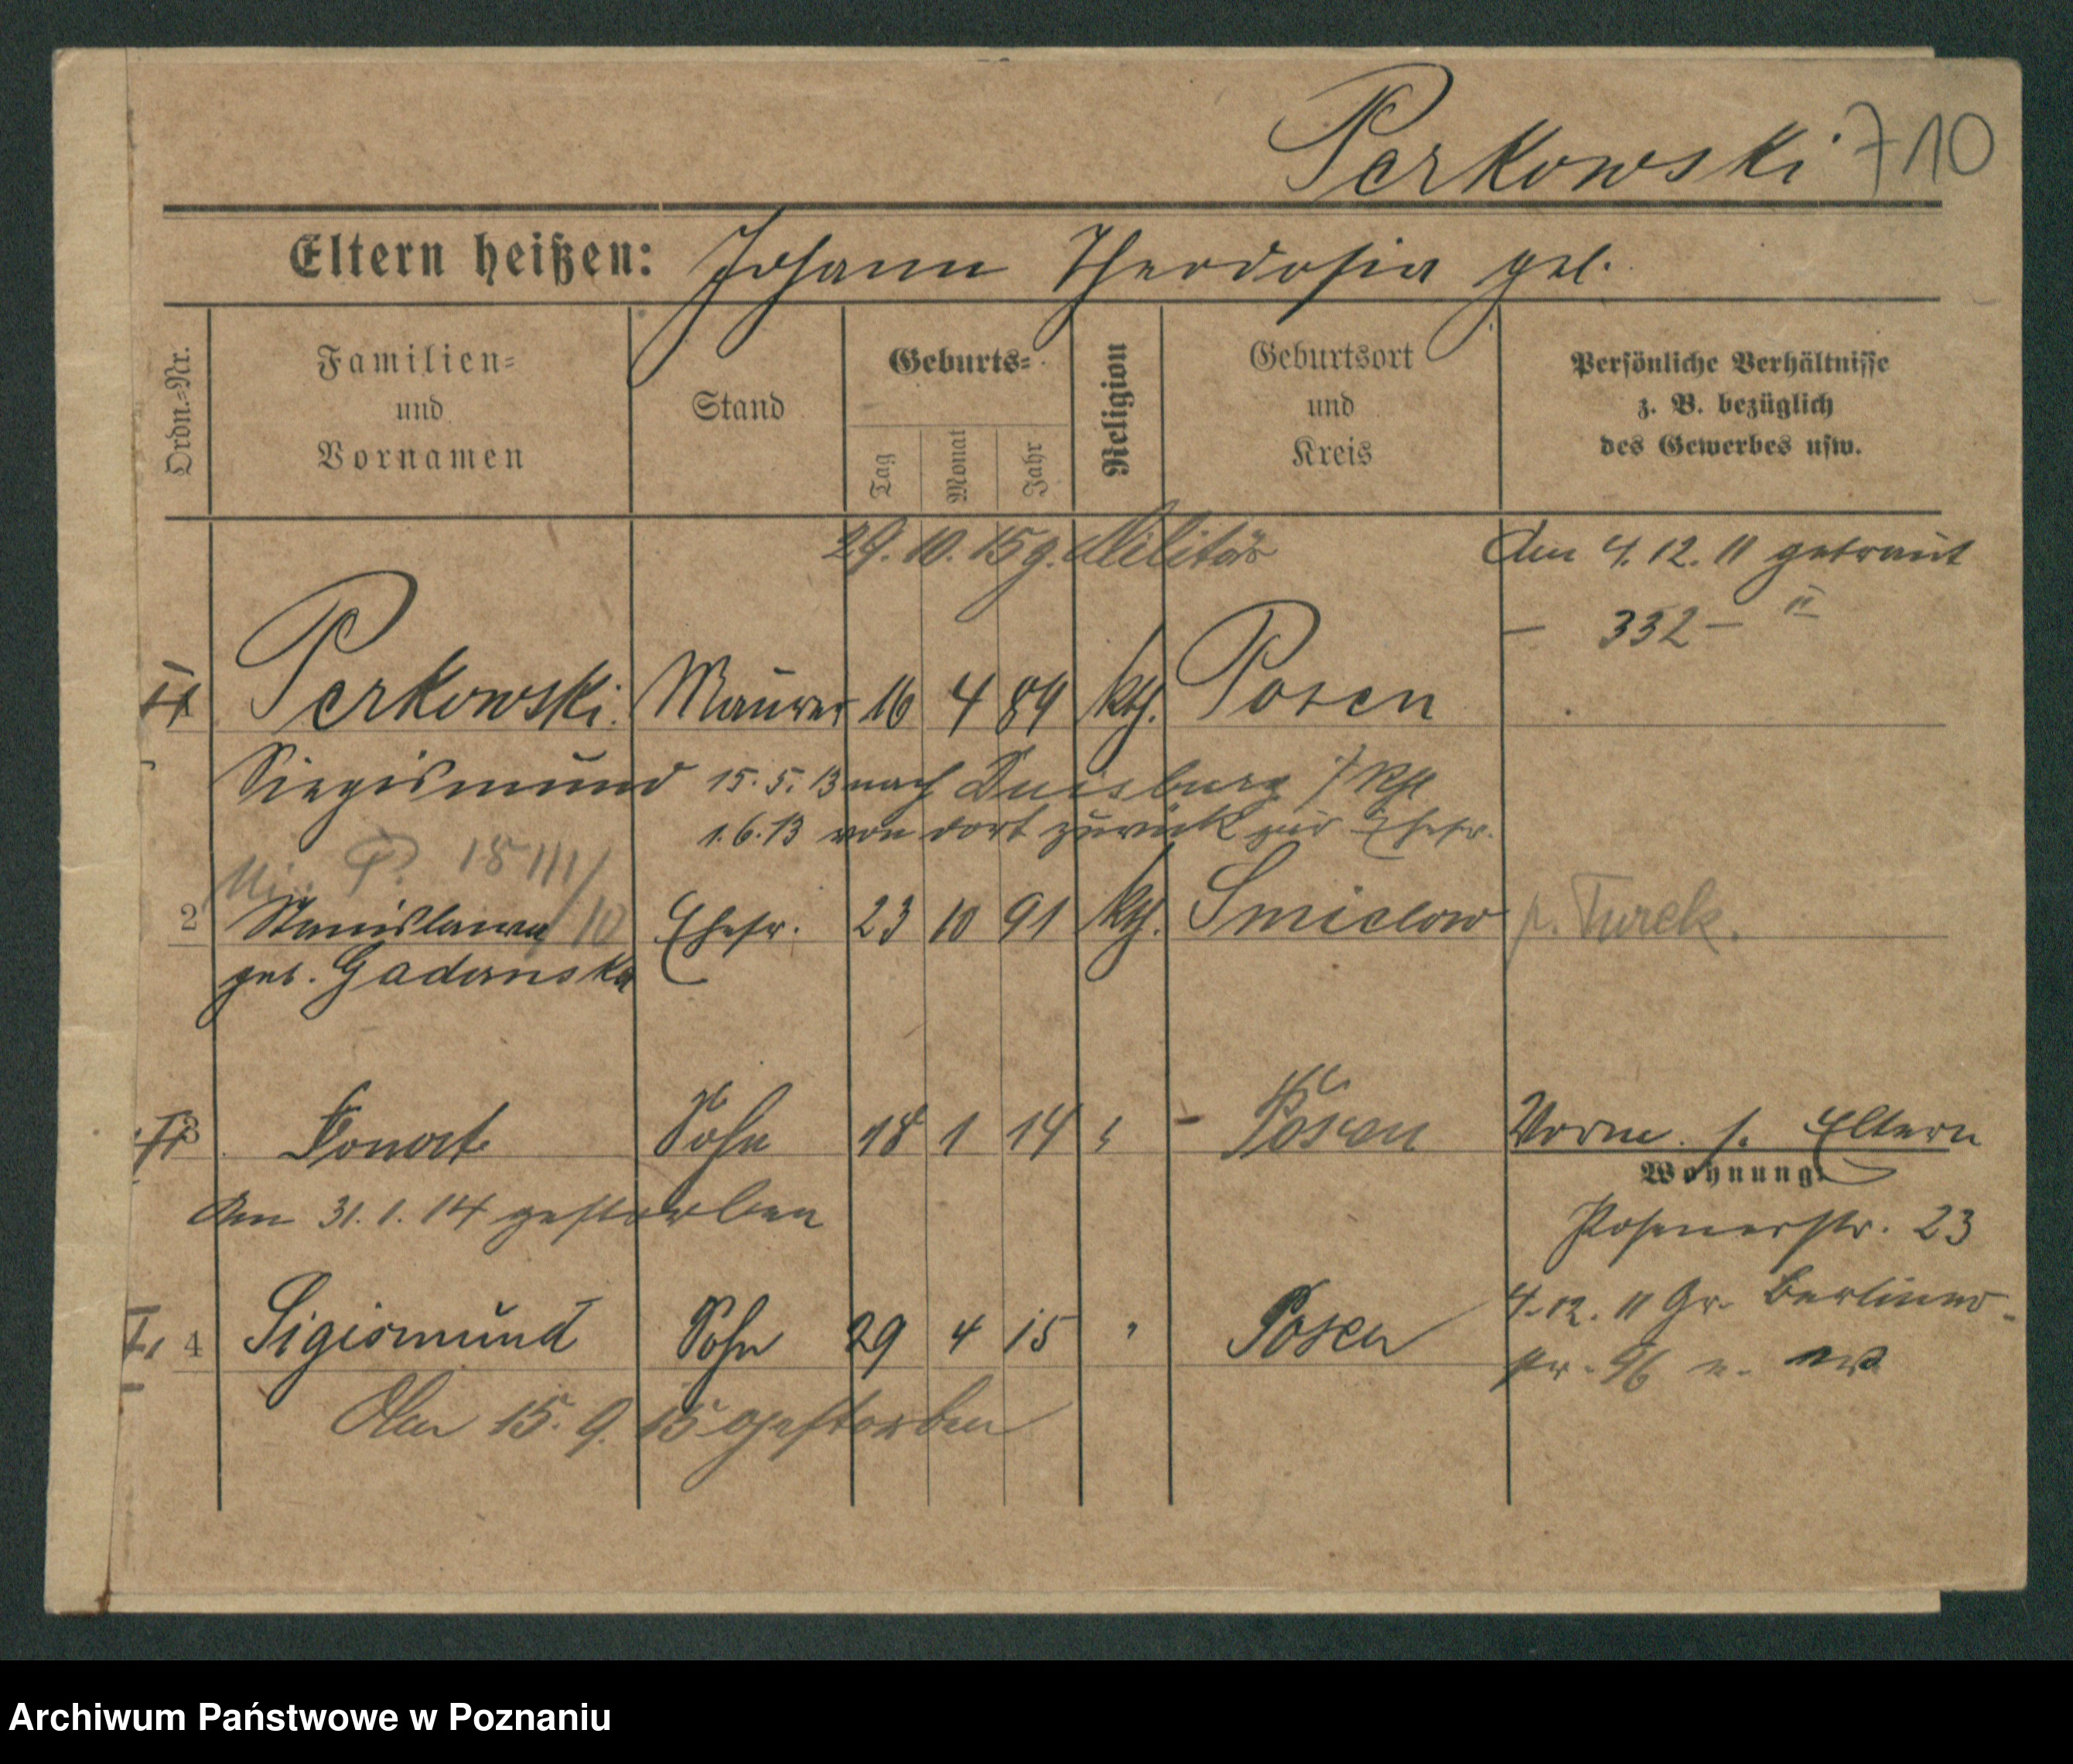 Perkowski 710
Eltern heißen: Johann Theodosia geb.
Ordn.=Nr.
Familien=
und
Vornamen
Stand
Geburts=
Tag
Monat
Jahr
Religion
Geburtsort
und
Kreis
Persönliche Verhältnisse
z. B. bezüglich
des Gewerbes usw.
29. 10. 15 z. Militär
Am 4. 12. 11 getraut
– 332 – II
Perkowski Maurer 16 4 89 kth. Posen
Siegismund 15. 5. 13 nach Duisburg
1. 6. 13 von dort zurück zur Ehefr.
18 III/10
2 Stanislawa Ehefr. 23 10 91 kth. Smielow p. Turek.
geb. Gadanska
3 Donat Sohn 18 1 14 Posen Vorm. s. Eltern
Wohnung:
Am 31. 1. 14 gestorben
Posenerstr. 23
4 Sigismund Sohn 29 4 15 " Posen
4. 12. 11 Gr. Berliner-
str. 96
Am 15. 9. 15 gestorben
Archiwum Państwowe w Poznaniu